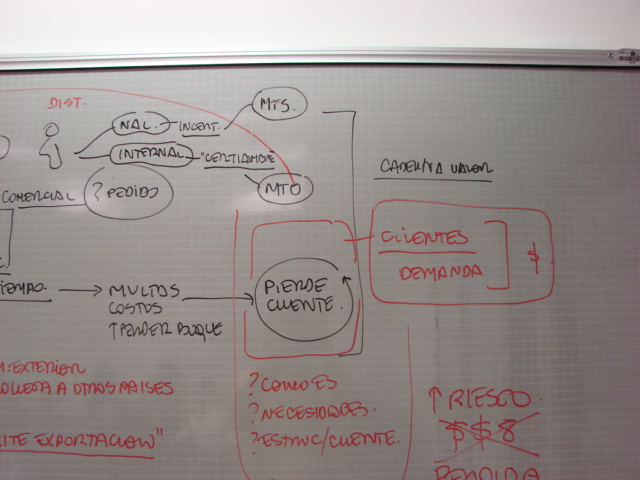 DIST.
MTS.
NAL. INCERT.
INTERNAL CERTIDUMBRE
MTO
CADENA VALOR
COMERCIAL ? PEDIDO
CLIENTES
DEMANDA $
TIEMPO. → MULTAS
COSTOS
↑ PERDER BUQUE
PIERDE
CLIENTE.
EXTERIOR
A OTROS PAISES
EXPORTACION"
? COMO ES
? NECESIDADES.
? ESTRUC/CLIENTE.
↑ RIESGO.
$ $ 8
PERDIDA